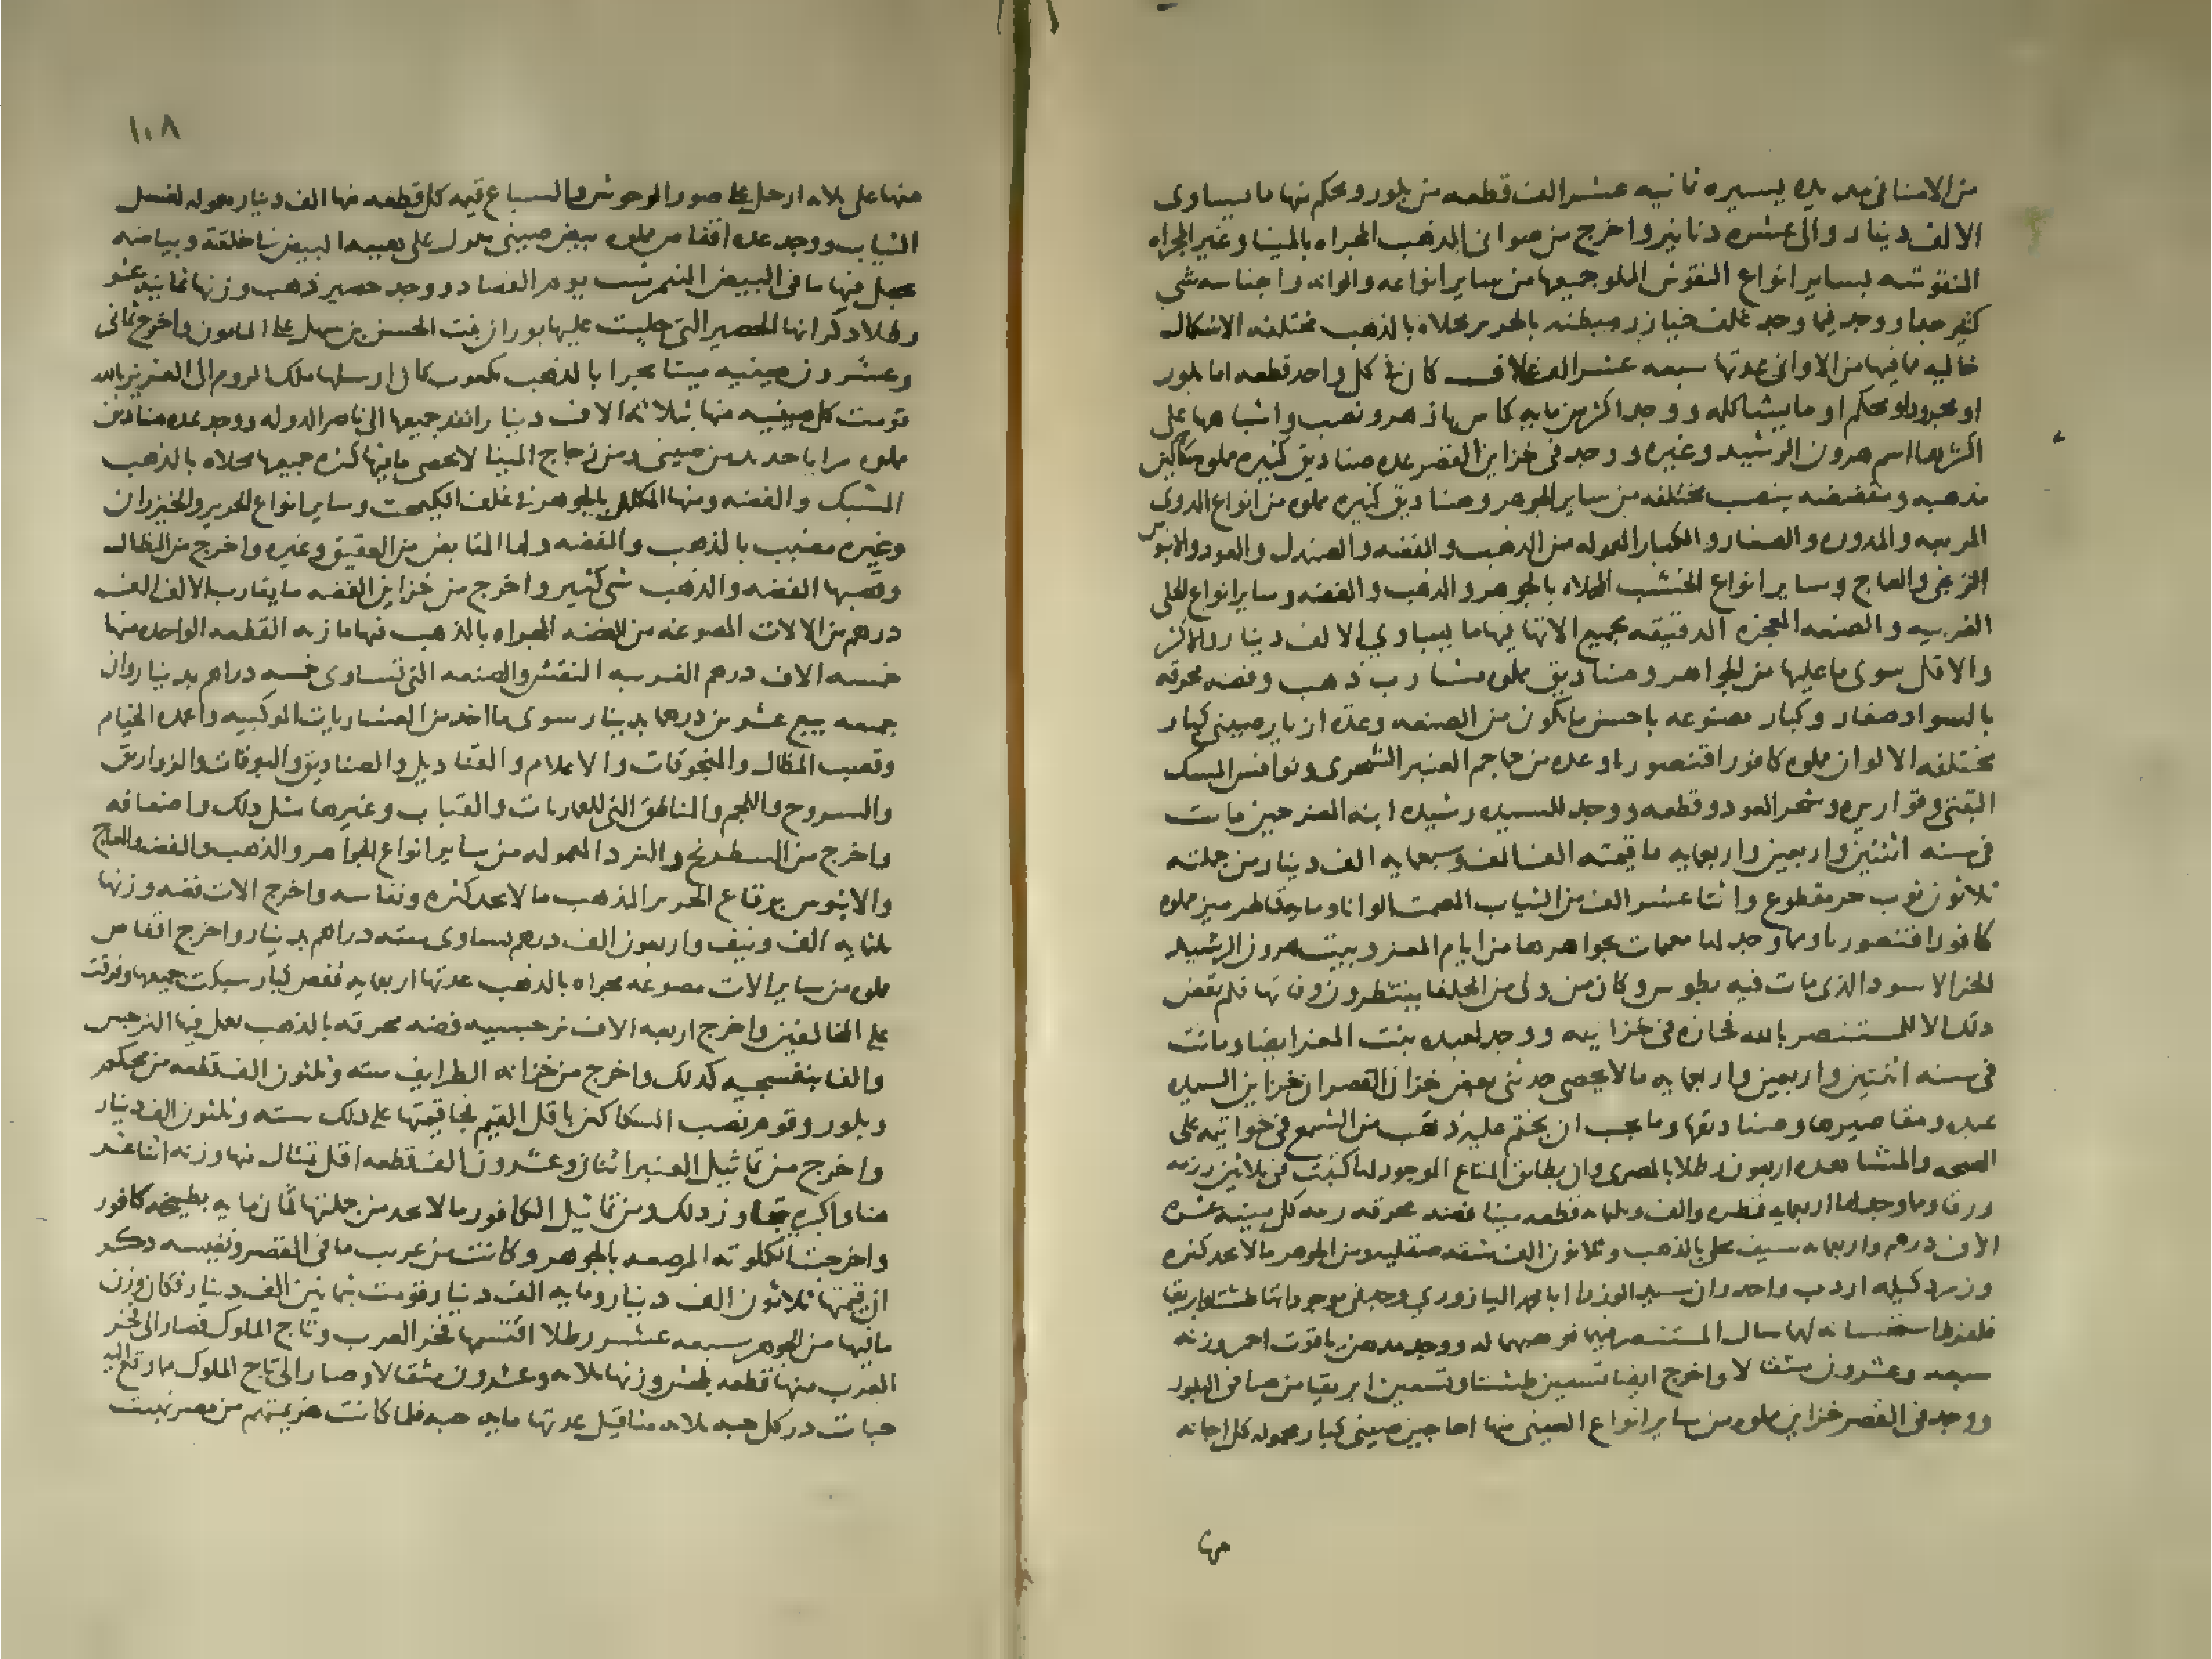 من الامنا فى مده يسيره ثمانيه عشر الف قطعه من بلور ومحكم منها ما يساوى
الالف دينار والى عشره دنانير واخرج من صوانى الذهب المجراه بالمينا وغير المجراه
المنقوشه بساير انواع النقوش المملو جميعها من ساير انواعه والوانه واجناسه شى
كثير جدا ووجد فيما وجد غلف خيازر مبطنه بالحرير محلاه بالذهب مختلفه الاشكال
خاليه مما فيها من الاوانى عدتها سبعه عشر الف غلاف كان فى كل واحد قطعه اما بلور
او مجرود او محكم او ما يشاكله ووجد اكثر من مايه كاس بازهر ونصب واشباهها على
اكثرها اسم هرون الرشيد وغيره ووجد فى خزاين القصر عده صناديق كثيره مملوه سكاكين
مذهبه ومفضضه بنصب مختلفه من ساير الجوهر وصناديق كثيره مملوه من انواع الدوى
المربعه والمدوره والصغار والكبار المعموله من الذهب والفضه والصندل والعود والابنوس
الزنجى والعاج وساير انواع الخشب المحلاه بالجوهر والذهب والفضه وساير انواع الحلى
الغريبه والصنعه المعجزه الدقيقه بجميع الاتها فيها ما يساوي الالف دينار والاكثر
والاقل سوى ما عليها من الجواهر وصناديق مملوه مشارب ذهب وفضه محرقه
بالسواد صغار وكبار مصنوعه باحسن ما يكون من الصنعه وعده ازيار صينى كبار
مختلفه الالوان مملوه كافورا قنصوريا وعده من جماجم العنبر الشحرى ونوافس المسك
التبتى وقواريره وشجر العود وقطعه ووجد للسيده رشيده ابنه المعز حين ماتت
فى سنه اثنتين واربعين واربعمايه ما قيمته الف الف وسبعمايه الف دينار من جملته
ثلاثون ثوب خز مقطوع واثنا عشر الف من الثياب المصمت الوانا ومايه قاطرميز مملوه
كافورا قنصوريا ومما وجد لها معممات بجواهرها من ايام المعز وبيت هرون الرشيد
الخز الاسود الذى مات فيه بطوس وكان من ولى من الخلفا ينتظرون وفاتها فلم يقض
ذلك الا للمستنصر بالله فحازه فى خزاينه ووجد لعبده بنت المعز ايضا وماتت
فى سنه اثنتين واربعين واربعمايه ما لا يحصى حدثنى بعض خزان القصر ان خزاين السيده
عبده ومقاصيرها وصناديقها وما يجب ان يختم عليه ذهب من الشمع فى خواتيمه على
الصحه والمشاهده اربعون رطلا بالمصرى وان بطايق المتاع الموجود لها كتبت فى ثلاثين رزمه
ورق ومما وجد لها اربعمايه قمطره والف وثلثمايه قطعه مينا فضه محرقه زنه كل مينيه عشره
الاف درهم واربعمايه سيف محلى بالذهب وثلاثون الف شقه صقليه ومن الجوهر ما لا يحد كثره
وزمرد كيله اردب واحد وان سيد الوزرا ابا محمد اليازوري وجد فى موجوداتها طشتا وابريقا
فلفرط استحسانه لهما سال المستنصر فيهما فوهبهما له ووجد مدهن ياقوت احمر وزنه
سبعه وعشرون مثقالا واخرج ايضا تسعين طشتا وتسعين ابريقا من صافى البلور
ووجد فى القصر خزاين مملوه من ساير انواع الصينى منها اجاجين صينى كبار معموله كل اجانه
منها
١٠٨
منها على ثلاثه ارجل على صور الوحوش والسباع قيمه كل قطعه منها الف دينار معموله لغسل
الثياب ووجد عده اقفاص مملوه بيض صينى معمول على هيئه البيض فى خلقته وبياضه
يجعل فيها ما فى البيض النمرشت يوم الفصاد ووجد حصير ذهب وزنها ثمانيه عشر
رطلا ذكر انها الحصير التى جليت عليها بوران بنت الحسن بن سهل على المامون واخرج ثمانى
وعشرون صينيه مينا مجرا بالذهب بكعوب كان ارسلها ملك الروم الى العزيز بالله
قومت كل صينيه منها بثلاثه الاف دينار انفذ جميعها الى ناصر الدوله ووجد عده صناديق
مملوه مرايا حديد من صينى ومن زجاج المينا لا يحصى ما فيها كثره جميعها محلاه بالذهب
المشبك والفضه ومنها المكلل بالجوهر فى غلف الكيمخت وساير انواع الحرير والخيزران
وغيره مضبب بالذهب والفضه ولها المقابض من العقيق وغيره واخرج من المظال
وقصبها الفضه والذهب شى كثير واخرج من خزاين الفضه ما يقارب الالف الف
درهم من الالات المصوغه من الفضه المجراه بالذهب فيها ما زنه القطعه الواحده منها
خمسه الاف درهم الغريبه النقش والصنعه التى تساوى خمسه دراهم بدينار وان
جميعه بيع عشرين درهما بدينار سوى ما اخذ من العشاريات الموكبيه واعمده الخيام
وقصب المظال والمنجوقات والاعلام والقناديل والصناديق والبوقات والزواريق
والسروج واللجم والمناطق التى للعماريات والقباب وغيرها مثل ذلك واضعافه
واخرج من الشطرنج والنرد المعموله من ساير انواع الجواهر والذهب والفضه والعاج
والابنوس برقاع الحرير المذهب ما لا يحد كثره ونفاسه واخرج الات فضه وزنها
ثلثمايه الف ونيف واربعون الف درهم يساوى سته دراهم بدينار واخرج اقفاص
مملوه من ساير الات مصوغه مجراه بالذهب عدتها اربعمايه قفص كبار سبكت جميعها وفرقت
على المخالفين واخرج اربعه الاف نرجسيه فضه محرقه بالذهب يعمل فيها النرجس
والفا بنفسجيه كذلك واخرج من خزانه الطرايف سته وثلثون الف قطعه من محكم
وبلور وقوم نصب السكاكين باقل القيم فجا قيمتها على ذلك سته وثلثون الف دينار
واخرج من تماثيل العنبر اثنان وعشرون الف قطعه اقل تمثال منها وزنه اثنا عشر
منا واكبره يتجاوز ذلك ومن تماثيل الكافور ما لا يحد من جملتها ثمان مايه بطيخه كافور
واخرجت الكلوته المرصعه بالجوهر وكانت من غريب ما فى القصر ونفيسه ذكر
ان قيمتها ثلاثون الف دينار ومايه الف دينار وقومت بثمانين الف دينار وكان وزن
ما فيها من الجوهر سبعه عشر رطلا اقتسمها فخر العرب وتاج الملوك فصار الى فخر
العرب منها قطعه بلخش وزنها ثلاثه وعشرون مثقالا وصار الى تاج الملوك مما وقع اليه
حبات در كل حبه ثلاثه مثاقيل عدتها مايه حبه فلما كانت هزيمتهم من مصر نهبت